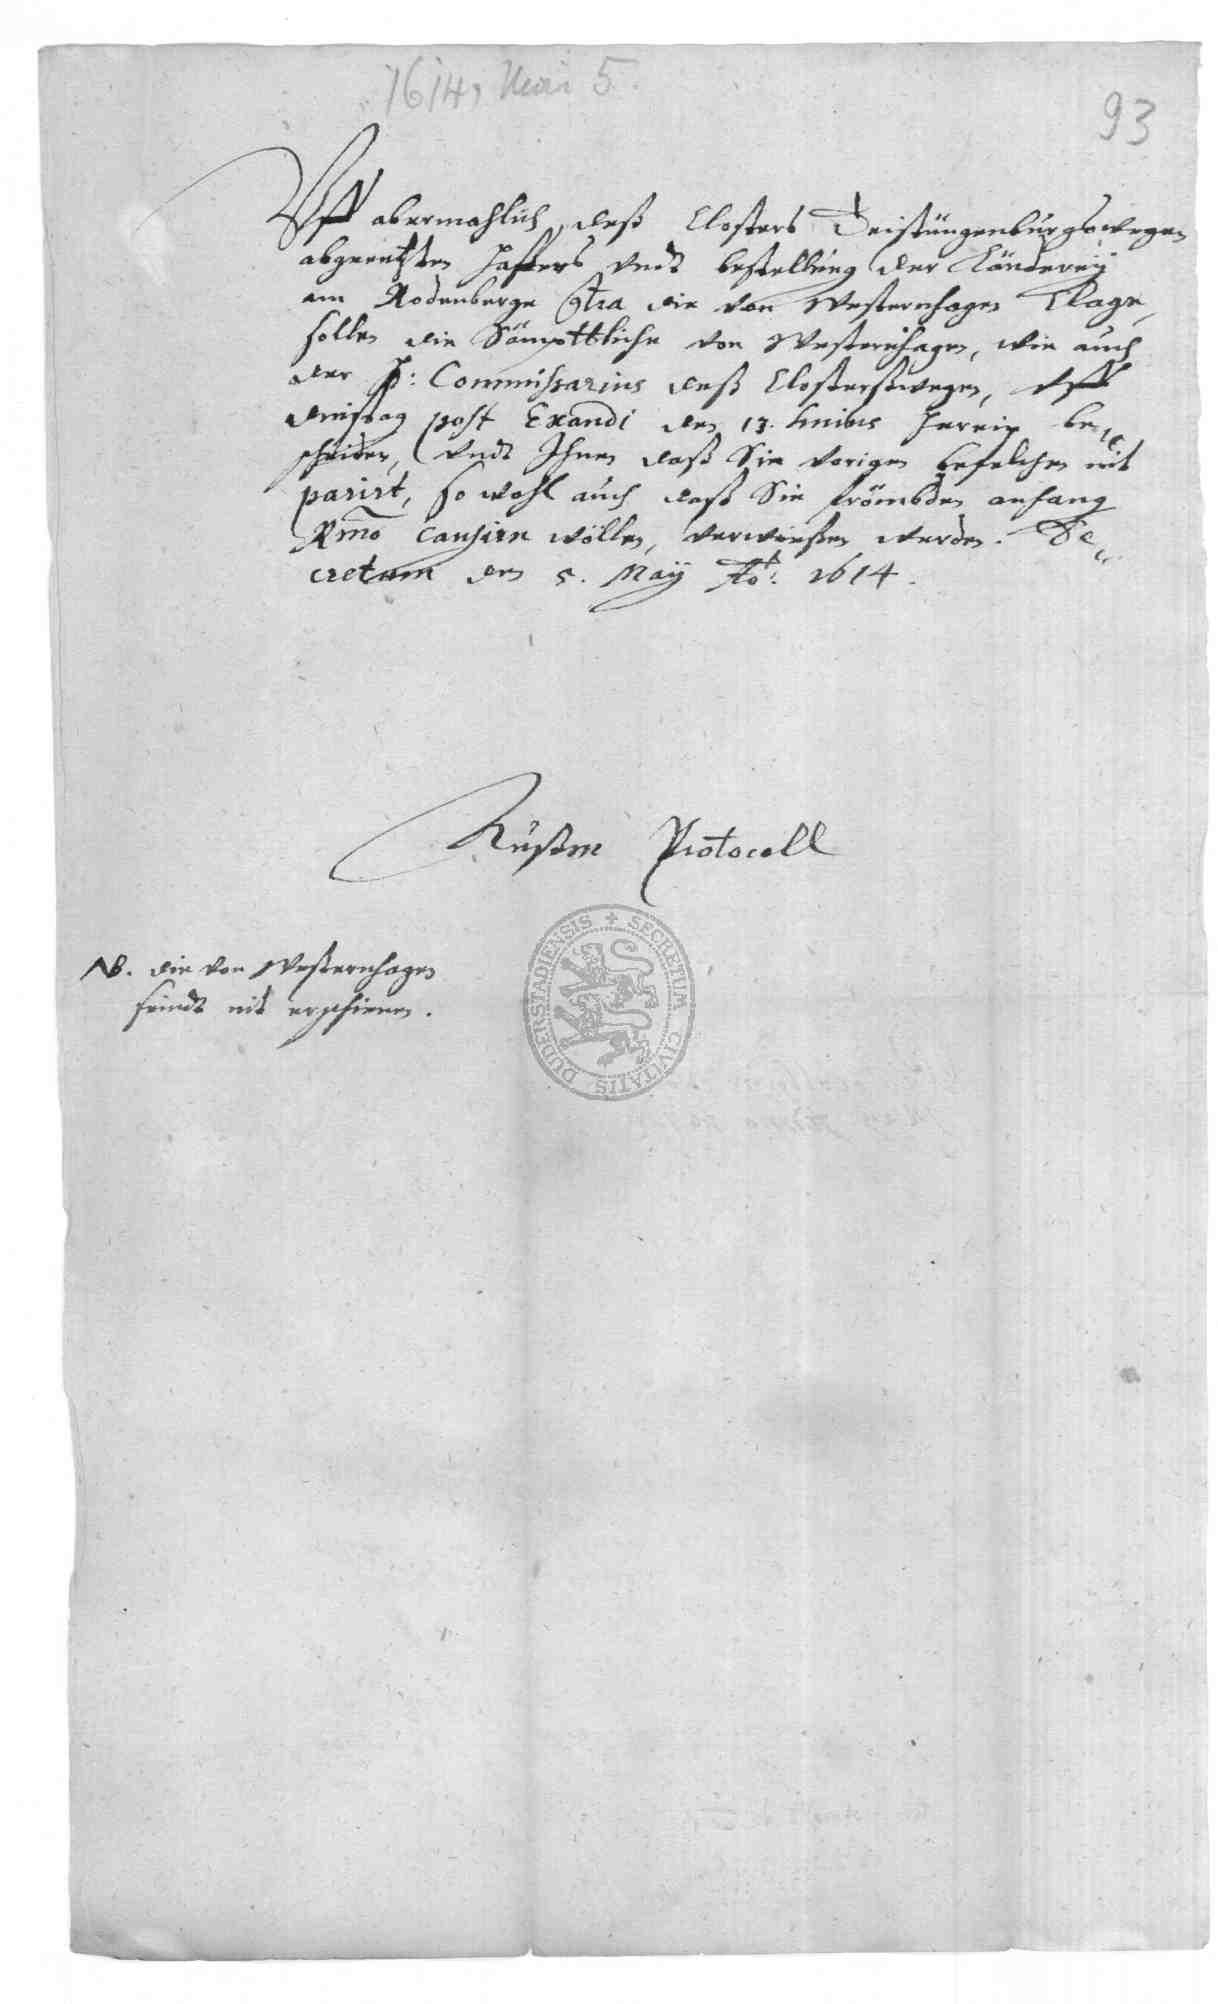 1614, Mai 5.
93
Vff abermahlich deß Closters Teistungenburgs wegen
abgeentzten Haffers vndt bestellung der Länderey
am Rodenberge Contra die von Westernhagen Clage,
sollen die Sämpttliche von Westernhagen, wie auch
der H: Commissarius deß Closterßwegen, vff
dinstag post Exaudi den 13. huius herein be„
scheiden, vndt Ihnen daß Sie vorigen befelchen nit
parirt, so wohl auch daß Sie frömbden anhang
Rmo causiren wöllen, verwießen werden. De„
cretum den 5. Maÿ Ao: 1614.
Protocoll
NB. die von Westernhagen
seindt nit erschienen.
DUDERSTADIENSIS + SECRETUM CIVITATIS